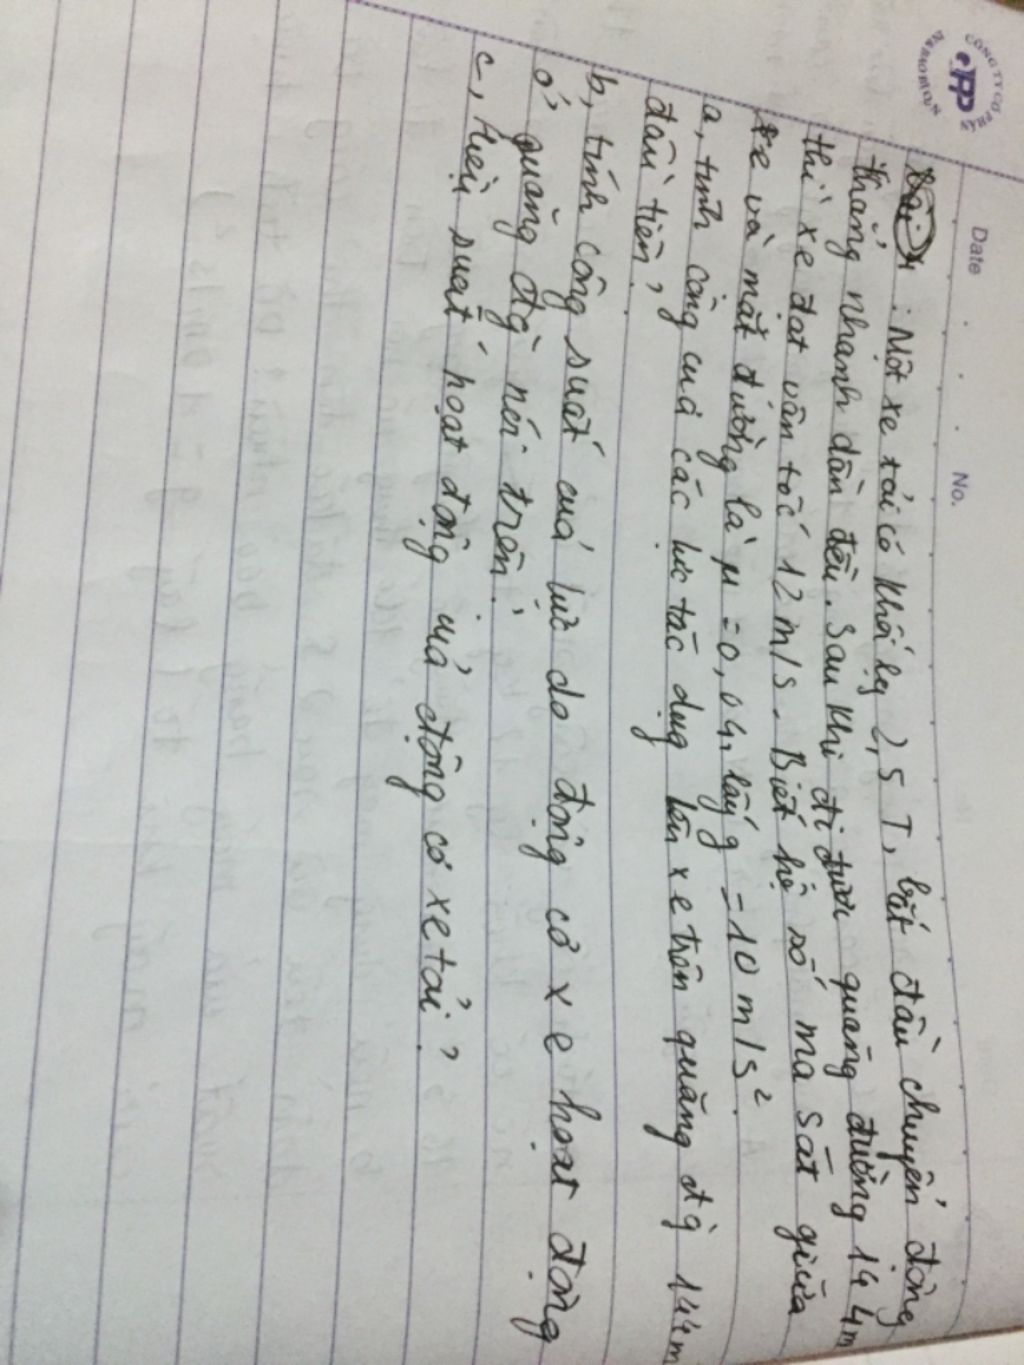 Date
No.
CÔNG TY CỔ PHẦN
epp
Bài 4: Một xe tải có khối lg 2,5 T, bắt đầu chuyển động
thẳng nhanh dần đều. Sau khi đi được quãng đường 144m
thì xe đạt vận tốc 12 m/s. Biết hệ số ma sát giữa
xe và mặt đường là μ = 0,04, lấy g = 10 m/s²
a, tính công của các lực tác dụng lên xe trên quãng đg 144m
đầu tiên,
b, tính công suất của lực do động cơ xe hoạt động
ở quãng đg nói trên.
c, Hiệu suất hoạt động của động cơ xe tải?